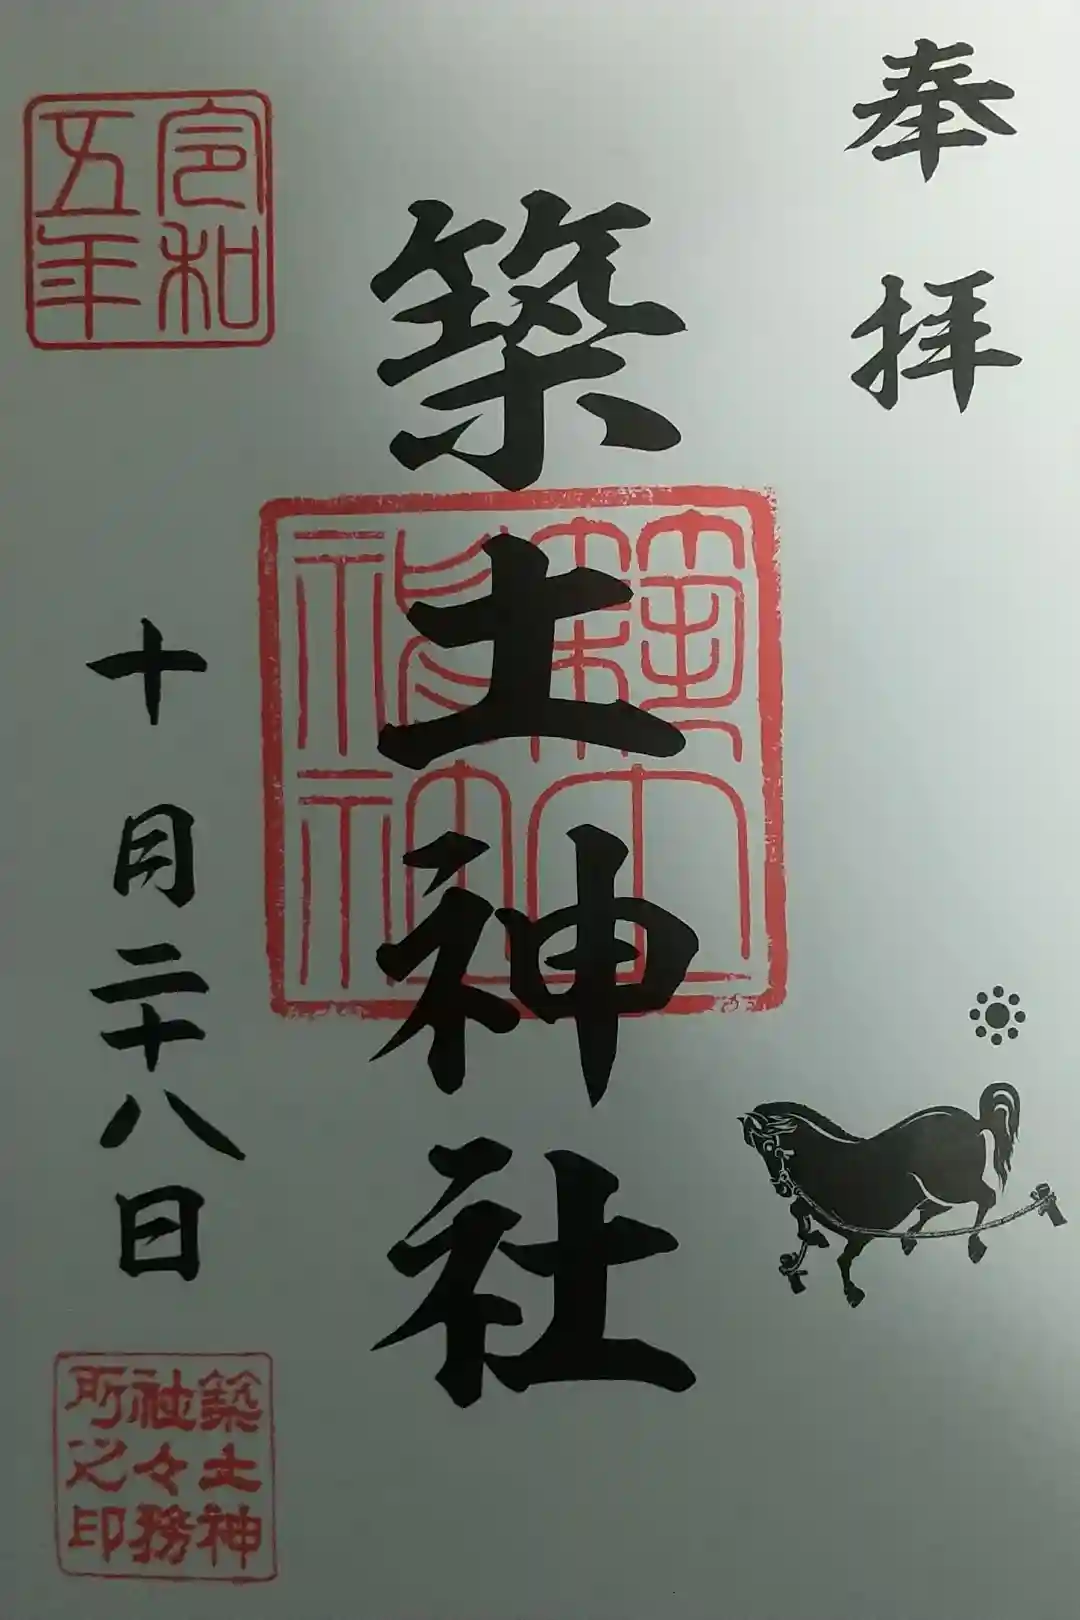 奉拝
築土神社
令和
五年
十月二十八日
築土神
社々務
所之印